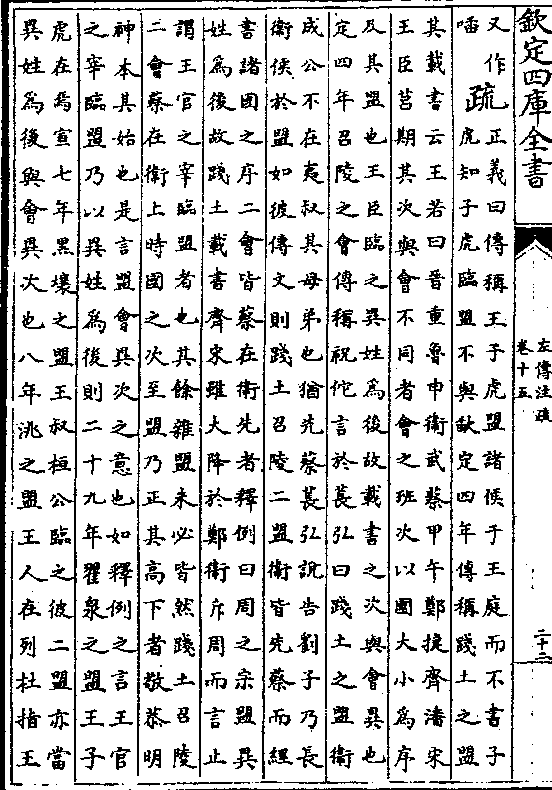 欽定四庫全書
左傳注疏
卷十五
二十二
又作
疏
正義曰傳稱王子虎盟諸侯于王庭而不書子
虎知子虎臨盟不與歃定四年傳稱踐土之盟
其載書云王若曰晉重魯申衛武蔡甲午鄭捷齊潘宋
王臣莒期其次與會不同者會之班次以國大小為序
及其盟也王臣臨之異姓為後故載書之次與會異也
定四年召陵之會傳稱祝佗言於萇弘曰踐土之盟衛
成公不在夷叔其母弟也猶先蔡萇弘說告劉子乃長
衛侯於盟如彼傳文則踐土召陵二盟衛皆先蔡而經
書諸國之序二會皆蔡在衛先者釋例曰周之宗盟異
姓為後故踐土載書齊宋雖大降於鄭衛斥周而言止
謂王官之宰臨盟者也其餘雜盟未必皆然踐土召陵
二會蔡在衛上時國之次至盟乃正其高下者敬恭明
神本其始也是言盟會異次之意也如釋例之言王官
之宰臨盟乃以異姓為後則二十九年翟泉之盟王子
虎在焉宣七年黑壤之盟王叔桓公臨之彼二盟亦當
異姓為後與會異次也八年洮之盟王人在列杜指王